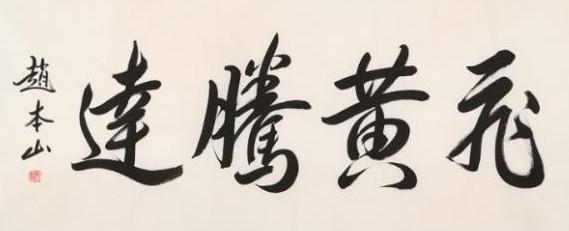 飛黄騰達
趙本山